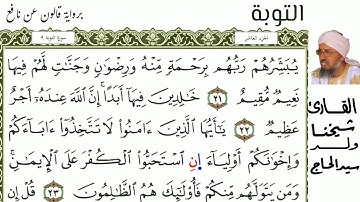 برواية قالون عن نافع
التوبة
الجزء العاشر
سورة التوبة ٩
يُبَشِّرُهُمْ رَبُّهُم بِرَحْمَةٍ مِّنْهُ وَرِضْوَٰنٍ وَجَنَّٰتٍ لَّهُمْ فِيهَا
نَعِيمٌ مُّقِيمٌ ٢١ خَٰلِدِينَ فِيهَا أَبَدًا إِنَّ ٱللَّهَ عِندَهُۥ أَجْرٌ
عَظِيمٌ ٢٢ يَٰأَيُّهَا ٱلَّذِينَ ءَامَنُوا۟ لَا تَتَّخِذُوٓا۟ ءَابَآءَكُمْ
وَإِخْوَٰنَكُمْ أَوْلِيَآءَ اِنِ ٱسْتَحَبُّوا۟ ٱلْكُفْرَ عَلَى ٱلْإِيمَٰنِ
وَمَن يَتَوَلَّهُم مِّنكُمْ فَأُو۟لَٰٓئِكَ هُمُ ٱلظَّٰلِمُونَ ٢٣ قُلْ إِن
القارئ
شيخنا
ولد
سيد الحاج